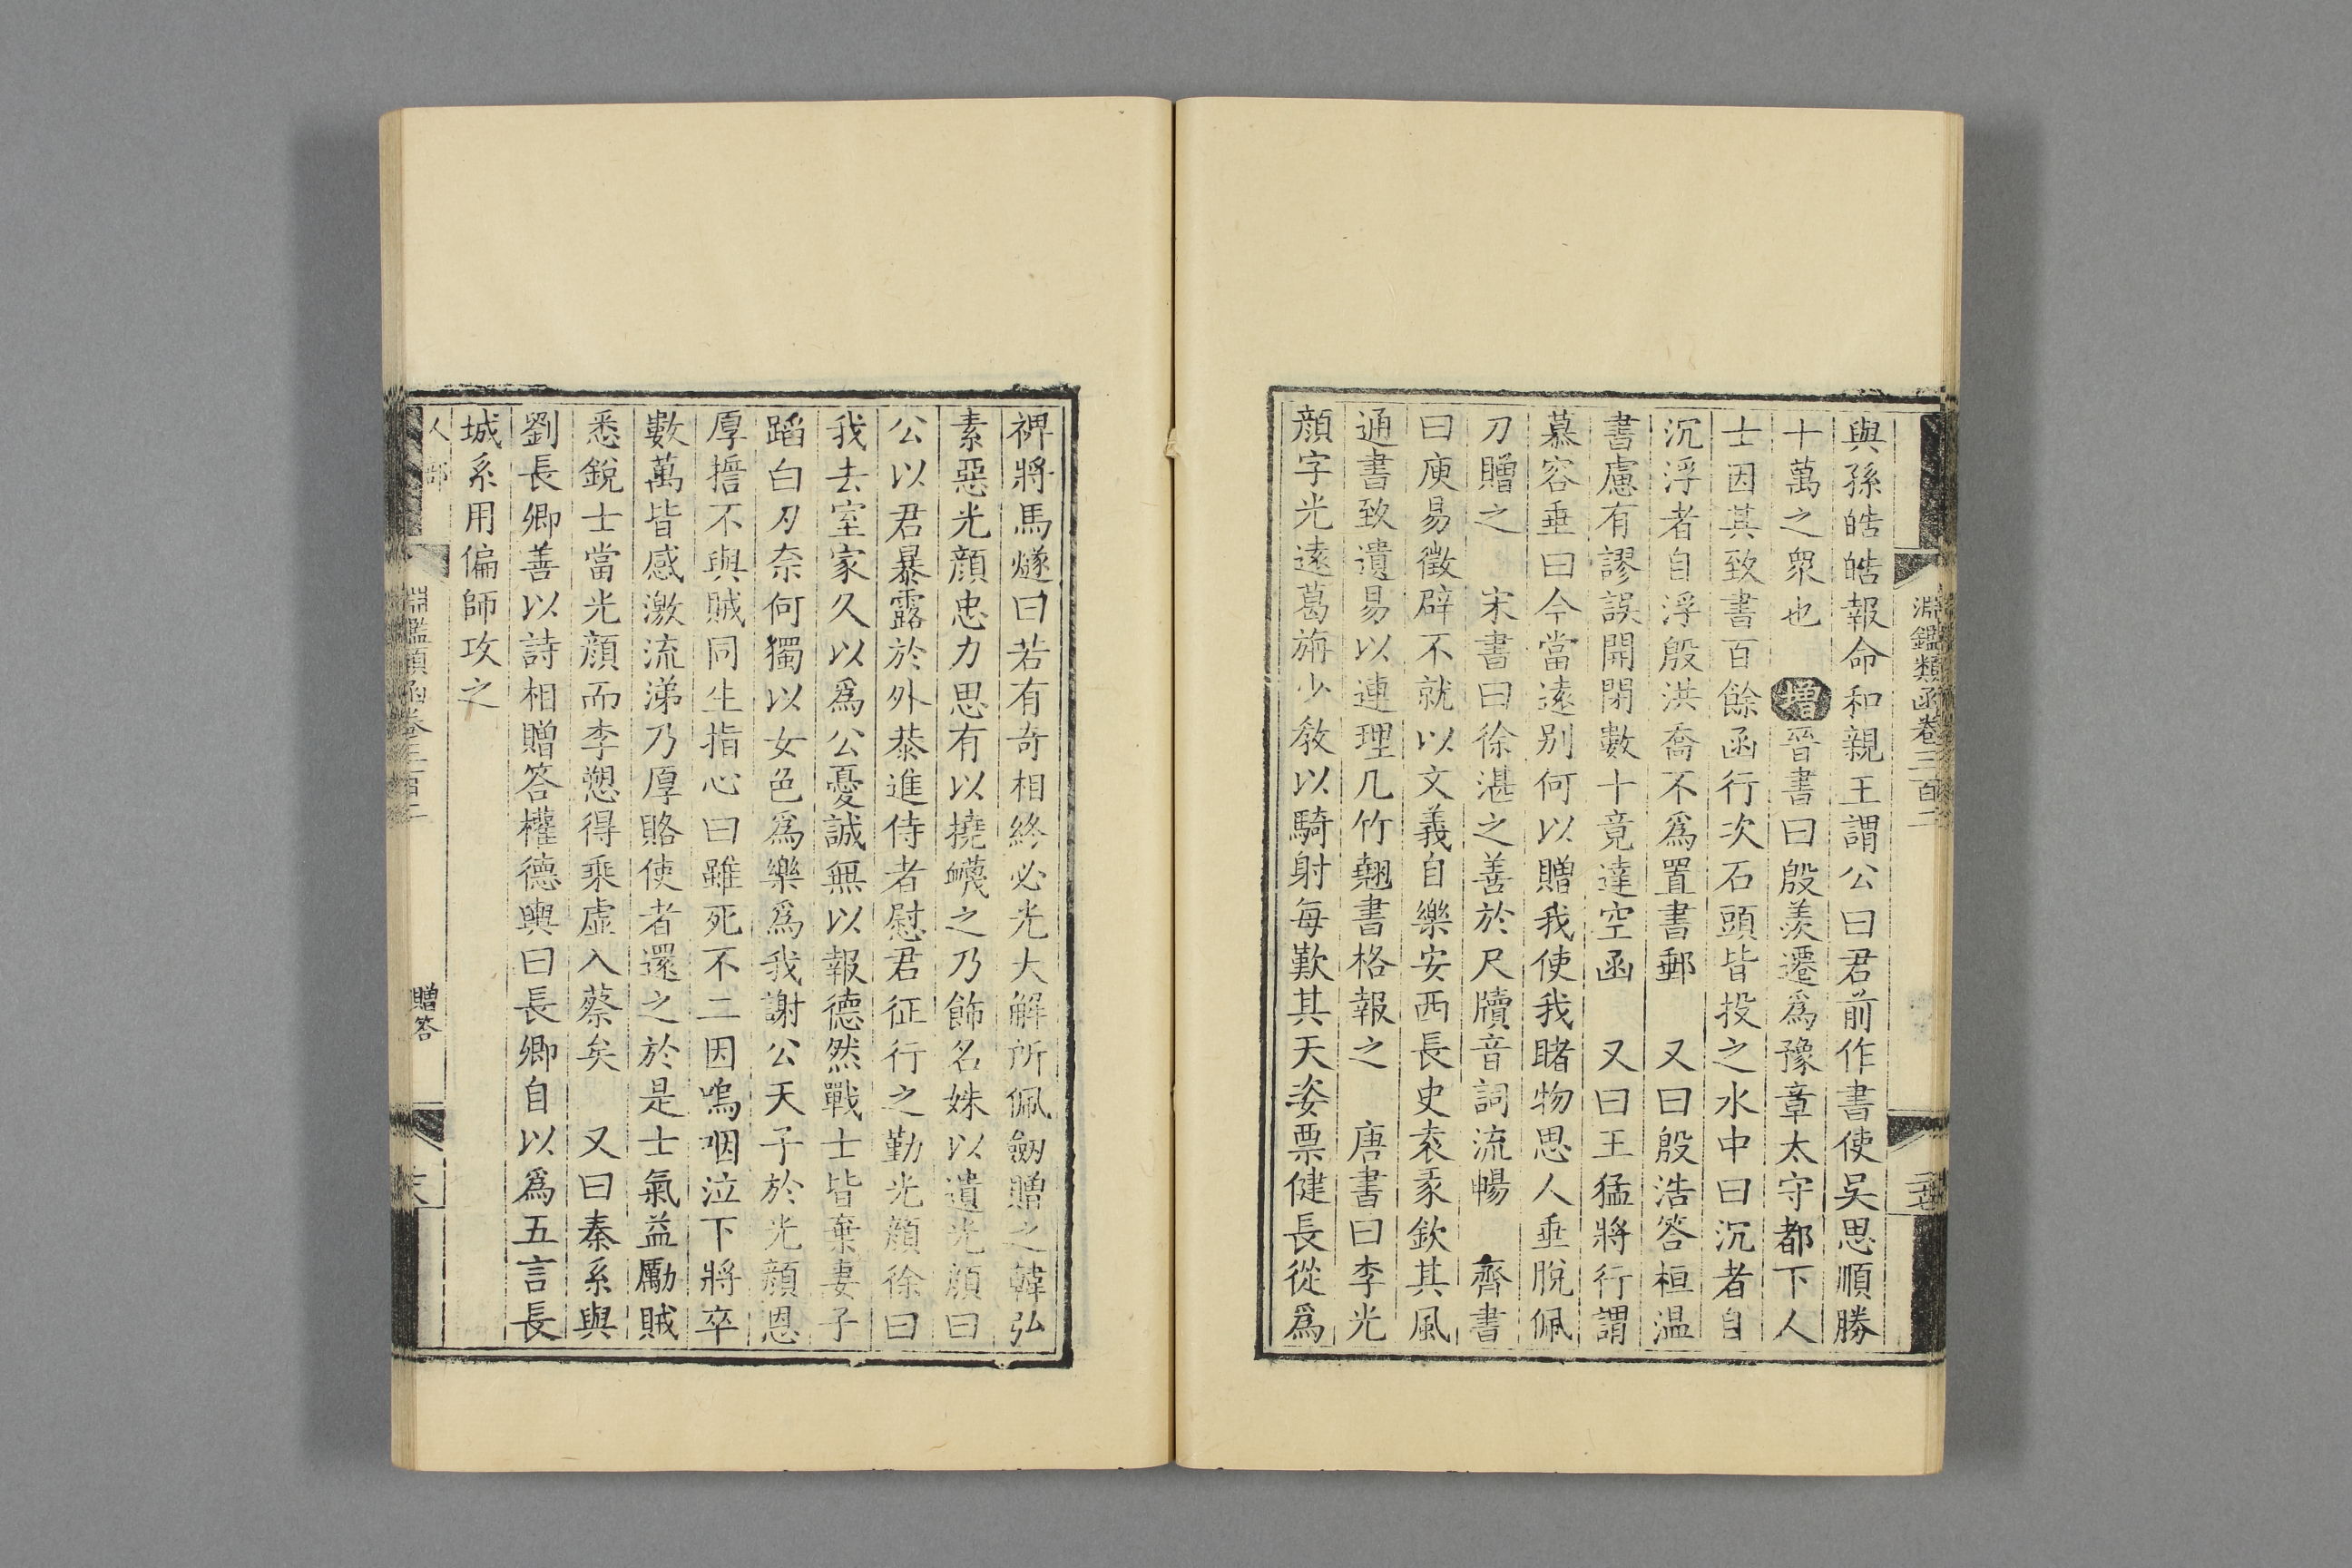 淵鑑類函卷三百二
與孫皓皓報命和親王謂公曰君前作書使吴思順勝
十萬之衆也　增晉書曰殷羨遷爲豫章太守都下人
士因其致書百餘函行次石頭皆投之水中曰沉者自
沉浮者自浮殷洪喬不爲置書郵　又曰殷浩答桓温
書慮有謬誤開閉數十竟達空函　又曰王猛將行謂
慕容垂曰今當遠别何以贈我使我睹物思人垂脫佩
刀贈之　宋書曰徐湛之善於尺牘音詞流暢　齊書
曰庾易徵辟不就以文義自樂安西長史袁彖欽其風
通書致遺易以連理几竹翹書格報之　唐書曰李光
顔字光遠葛旃少敎以騎射每歎其天姿票健長從爲
裨將馬燧曰若有奇相終必光大解所佩劒贈之韓弘
素惡光顔忠力思有以撓衊之乃飾名姝以遺光顔曰
公以君暴露於外恭進侍者慰君征行之勤光顔徐曰
我去室家久以爲公憂誠無以報德然戰士皆棄妻子
蹈白刃奈何獨以女色爲樂爲我謝公天子於光顔恩
厚誓不與賊同生指心曰雖死不二因嗚咽泣下將卒
數萬皆感激流涕乃厚賂使者還之於是士氣益勵賊
悉銳士當光顔而李愬得乘虛入蔡矣　又曰秦系與
劉長卿善以詩相贈答權德輿曰長卿自以爲五言長
城系用偏師攻之
人部
淵鑑類函卷三百二
贈答